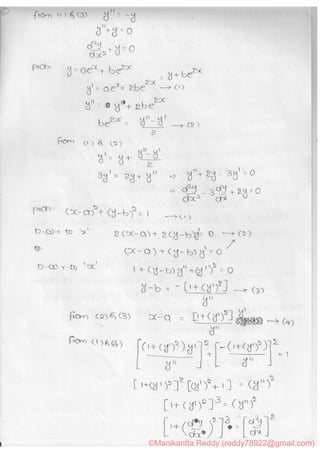 from (1) & (3) y'' = -y
y''+y = 0
d²y/dx² + y = 0
prob: y = ae^x + be^2x
= y + be^2x
y' = ae^x + 2be^2x → (1)
y'' = y' + 2be^2x
be^2x = (y''-y')/2 → (2)
from (1) & (2)
y' = y + (y''-y')/2
3y' = 2y + y'' ⇒ y''+2y-3y' = 0
⇒ d²y/dx² - 3 dy/dx + 2y = 0
prob: (x-a)² + (y-b)² = 1 → (1)
D.w.r to 'x' 2(x-a) + 2(y-b)y' = 0 → (2)
(x-a) + (y-b)y' = 0
D.w.r to 'x' 1 + (y-b)y'' + (y')² = 0
y-b = -[1+(y')²]/y'' → (3)
from (2) & (3) x-a = [1+(y')²]y'/y'' → (4)
from (1) & (4) [(1+(y')²)y'/y'']² + [-(1+(y')²)/y'']² = 1
[1+(y')²]² [(y')²+1] = (y'')²
[1+(y')²]³ = (y'')²
[1+(dy/dx)²]³ = [d²y/dx]²
©Manikantta Reddy (reddy78922@gmail.com)